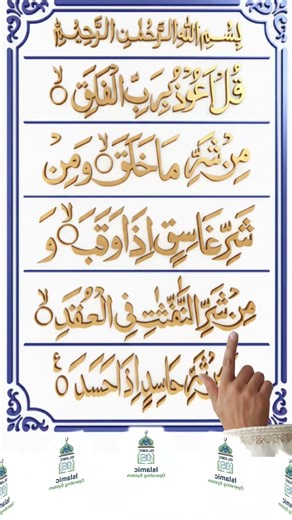 بِسْمِ اللهِ الرَّحْمٰنِ الرَّحِيْمِ
قُلْ اَعُوْذُ بِرَبِّ الْفَلَقِ ۙ
مِنْ شَرِّ مَا خَلَقَ ۙ وَمِنْ
شَرِّ غَاسِقٍ اِذَا وَقَبَ ۙ وَ
مِنْ شَرِّ النَّفّٰثٰتِ فِی الْعُقَدِ ۙ
شَرِّ حَاسِدٍ اِذَا حَسَدَ
ISLAMIC
Islamic
Operating System
ISLAMIC
Islamic
Operating System
ISLAMIC
Islamic
Operating System